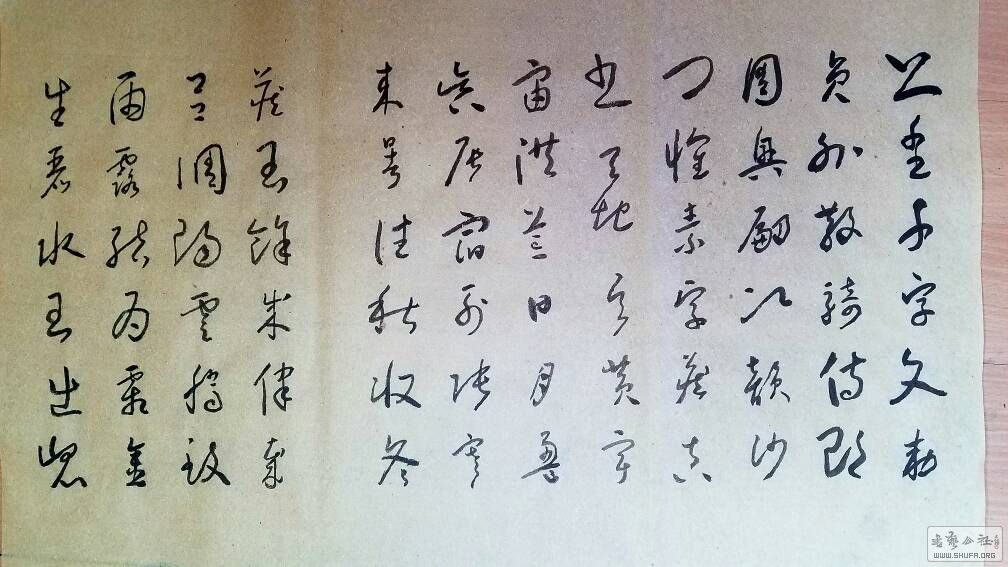 千字文敕
員外散騎侍郎
周興嗣次韻沙
門懷素字藏真
書天地玄黃宇
宙洪荒日月盈
昃辰宿列張寒
來暑往秋收冬
藏閏餘成律歲
呂調陽雲騰致
雨露結為霜金
生麗水玉出崑
WWW.SHUFA.ORG